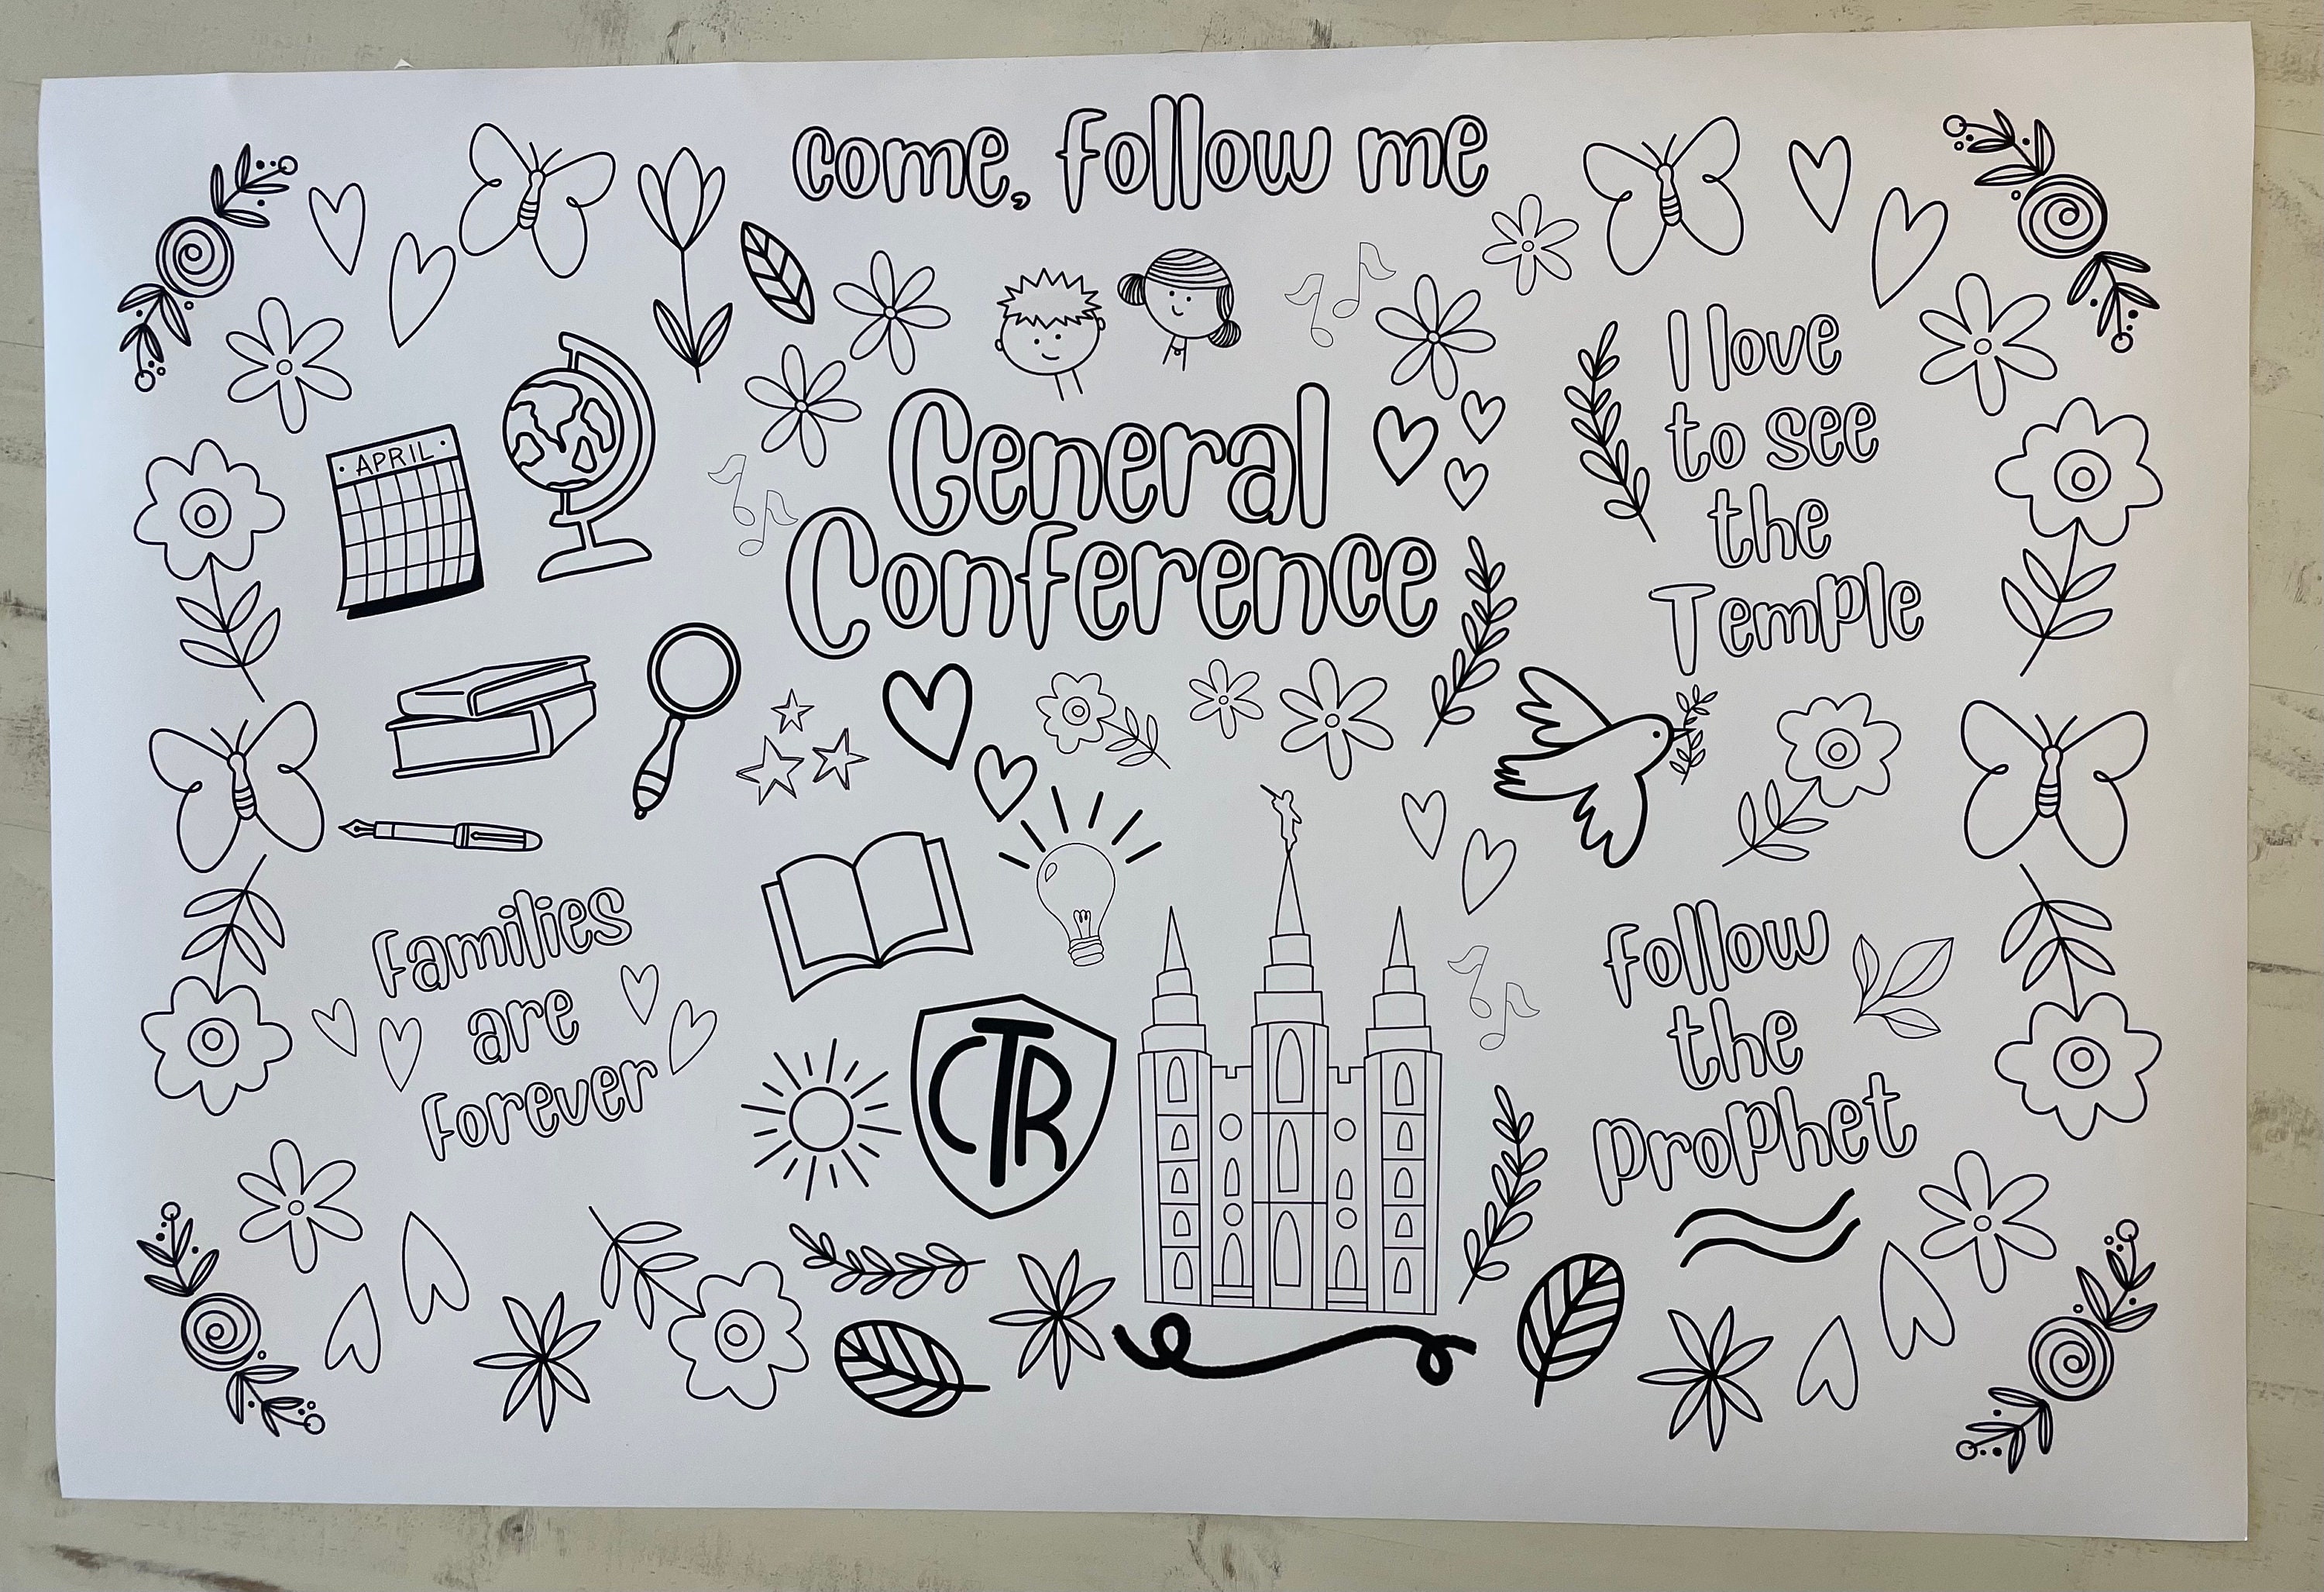 come, follow me
General
Conference
APRIL
I love
to see
the
Temple
Families
are
Forever
CTR
follow
the
prophet